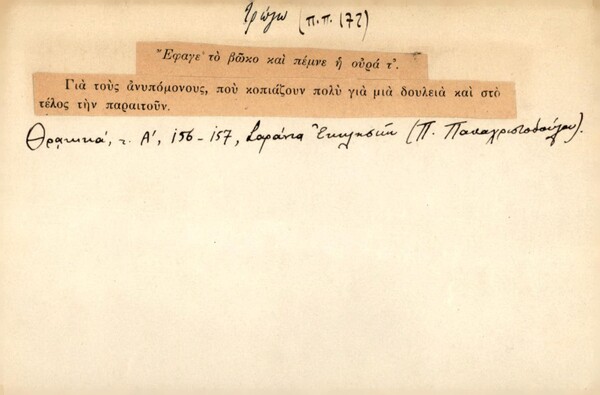 τρώγω (π.π. 172)
"Έφαγε τὸ βῶκο καὶ πέμνε ἡ οὐρά τ'.
Γιὰ τοὺς ἀνυπόμονους, ποὺ κοπιάζουν πολὺ γιὰ μιὰ δουλειὰ καὶ στὸ
τέλος τὴν παραιτοῦν.
Θρᾳκικά, τ. Α', 156-157, Σαράντα Ἐκκλησιῶν (Π. Παπαχριστοδούλου).